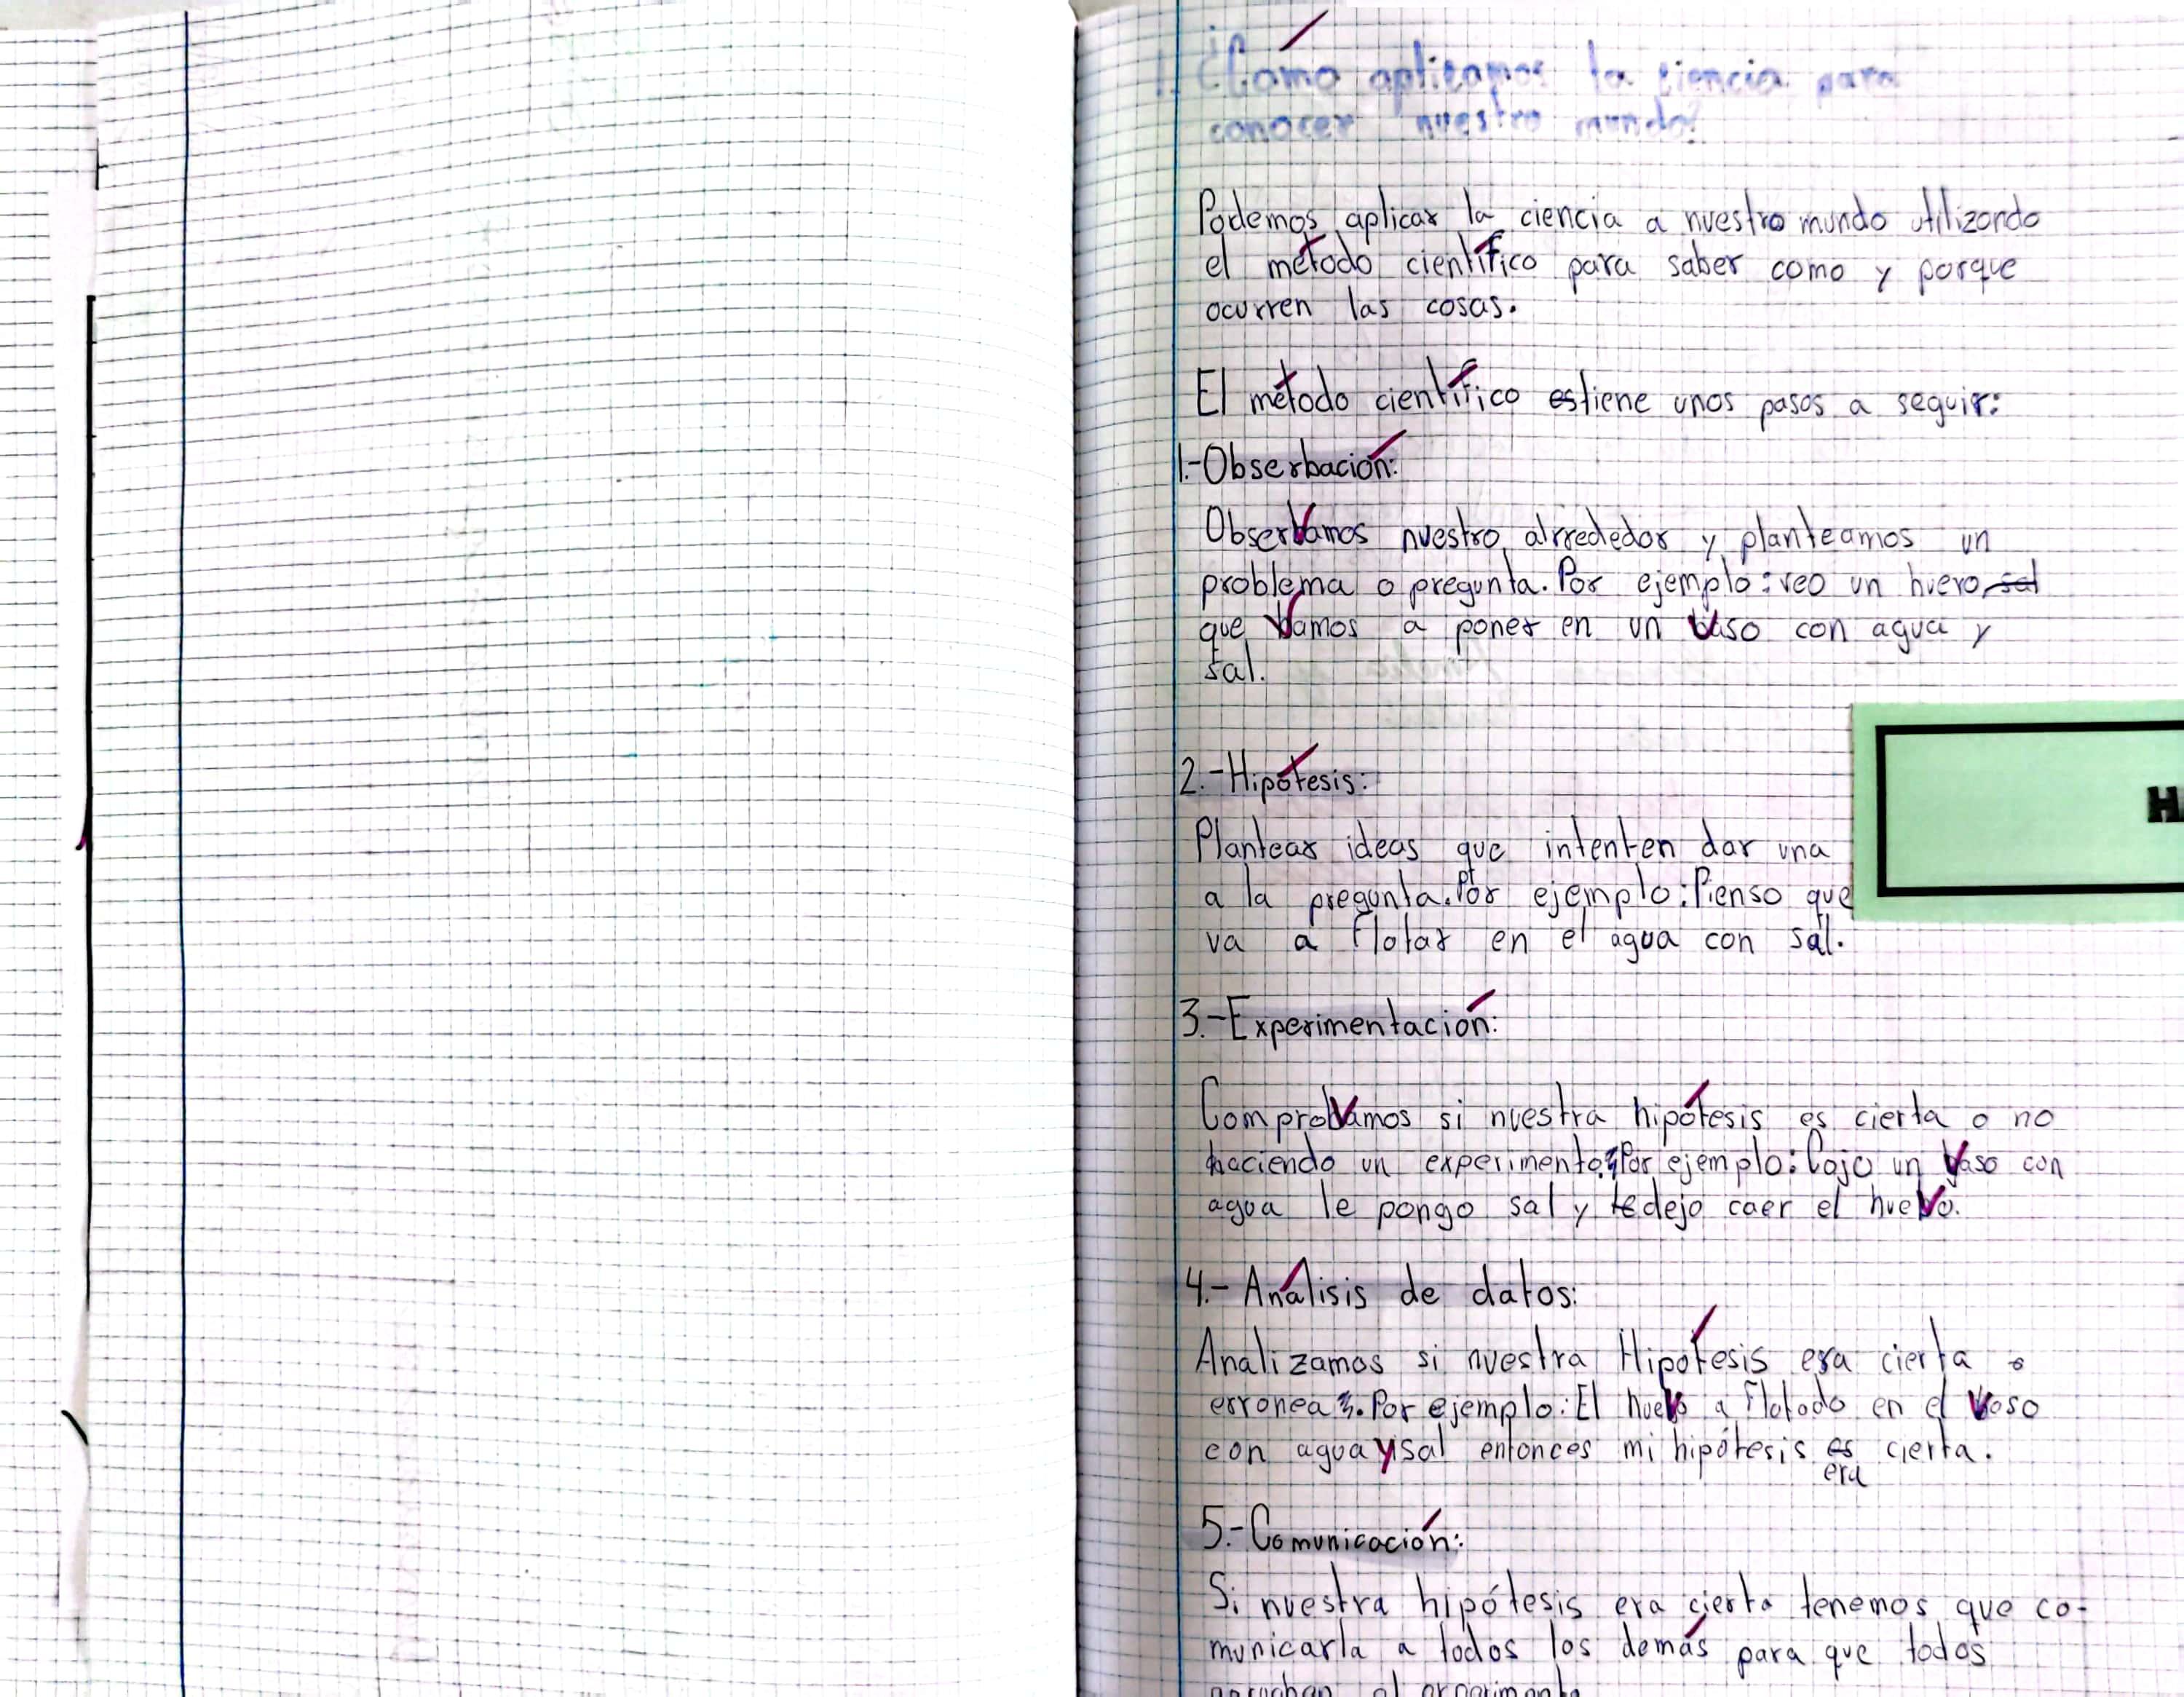 1. ¿Cómo aplicamos la ciencia para
conocer nuestro mundo?
Podemos aplicar la ciencia a nuestro mundo utilizando
el método científico para saber como y porque
ocurren las cosas.
El método científico es tiene unos pasos a seguir:
1.-Obserbación:
Observamos nuestro alrrededor y planteamos un
problema o pregunta. Por ejemplo: veo un huero sal
que Vamos a poner en un vaso con agua y
sal.
2.-Hipótesis:
H
Plantear ideas que intenten dar una
a la pregunta. Por ejemplo: Pienso que
va a flotar en el agua con sal.
3.-Experimentación:
Comprovamos si nuestra hipótesis es cierta o no
haciendo un experimento. Por ejemplo: Cojo un Vaso con
agua le pongo sal y te dejo caer el huevo.
4.- Análisis de datos:
Analizamos si nuestra Hipótesis era cierta o
erronea. Por ejemplo: El huevo a flotado en el Vaso
con agua y sal entonces mi hipótesis es cierta.
era
5.-Comunicación:
Si nuestra hipótesis era cierta tenemos que co-
municarla a todos los demás para que todos
el experimento